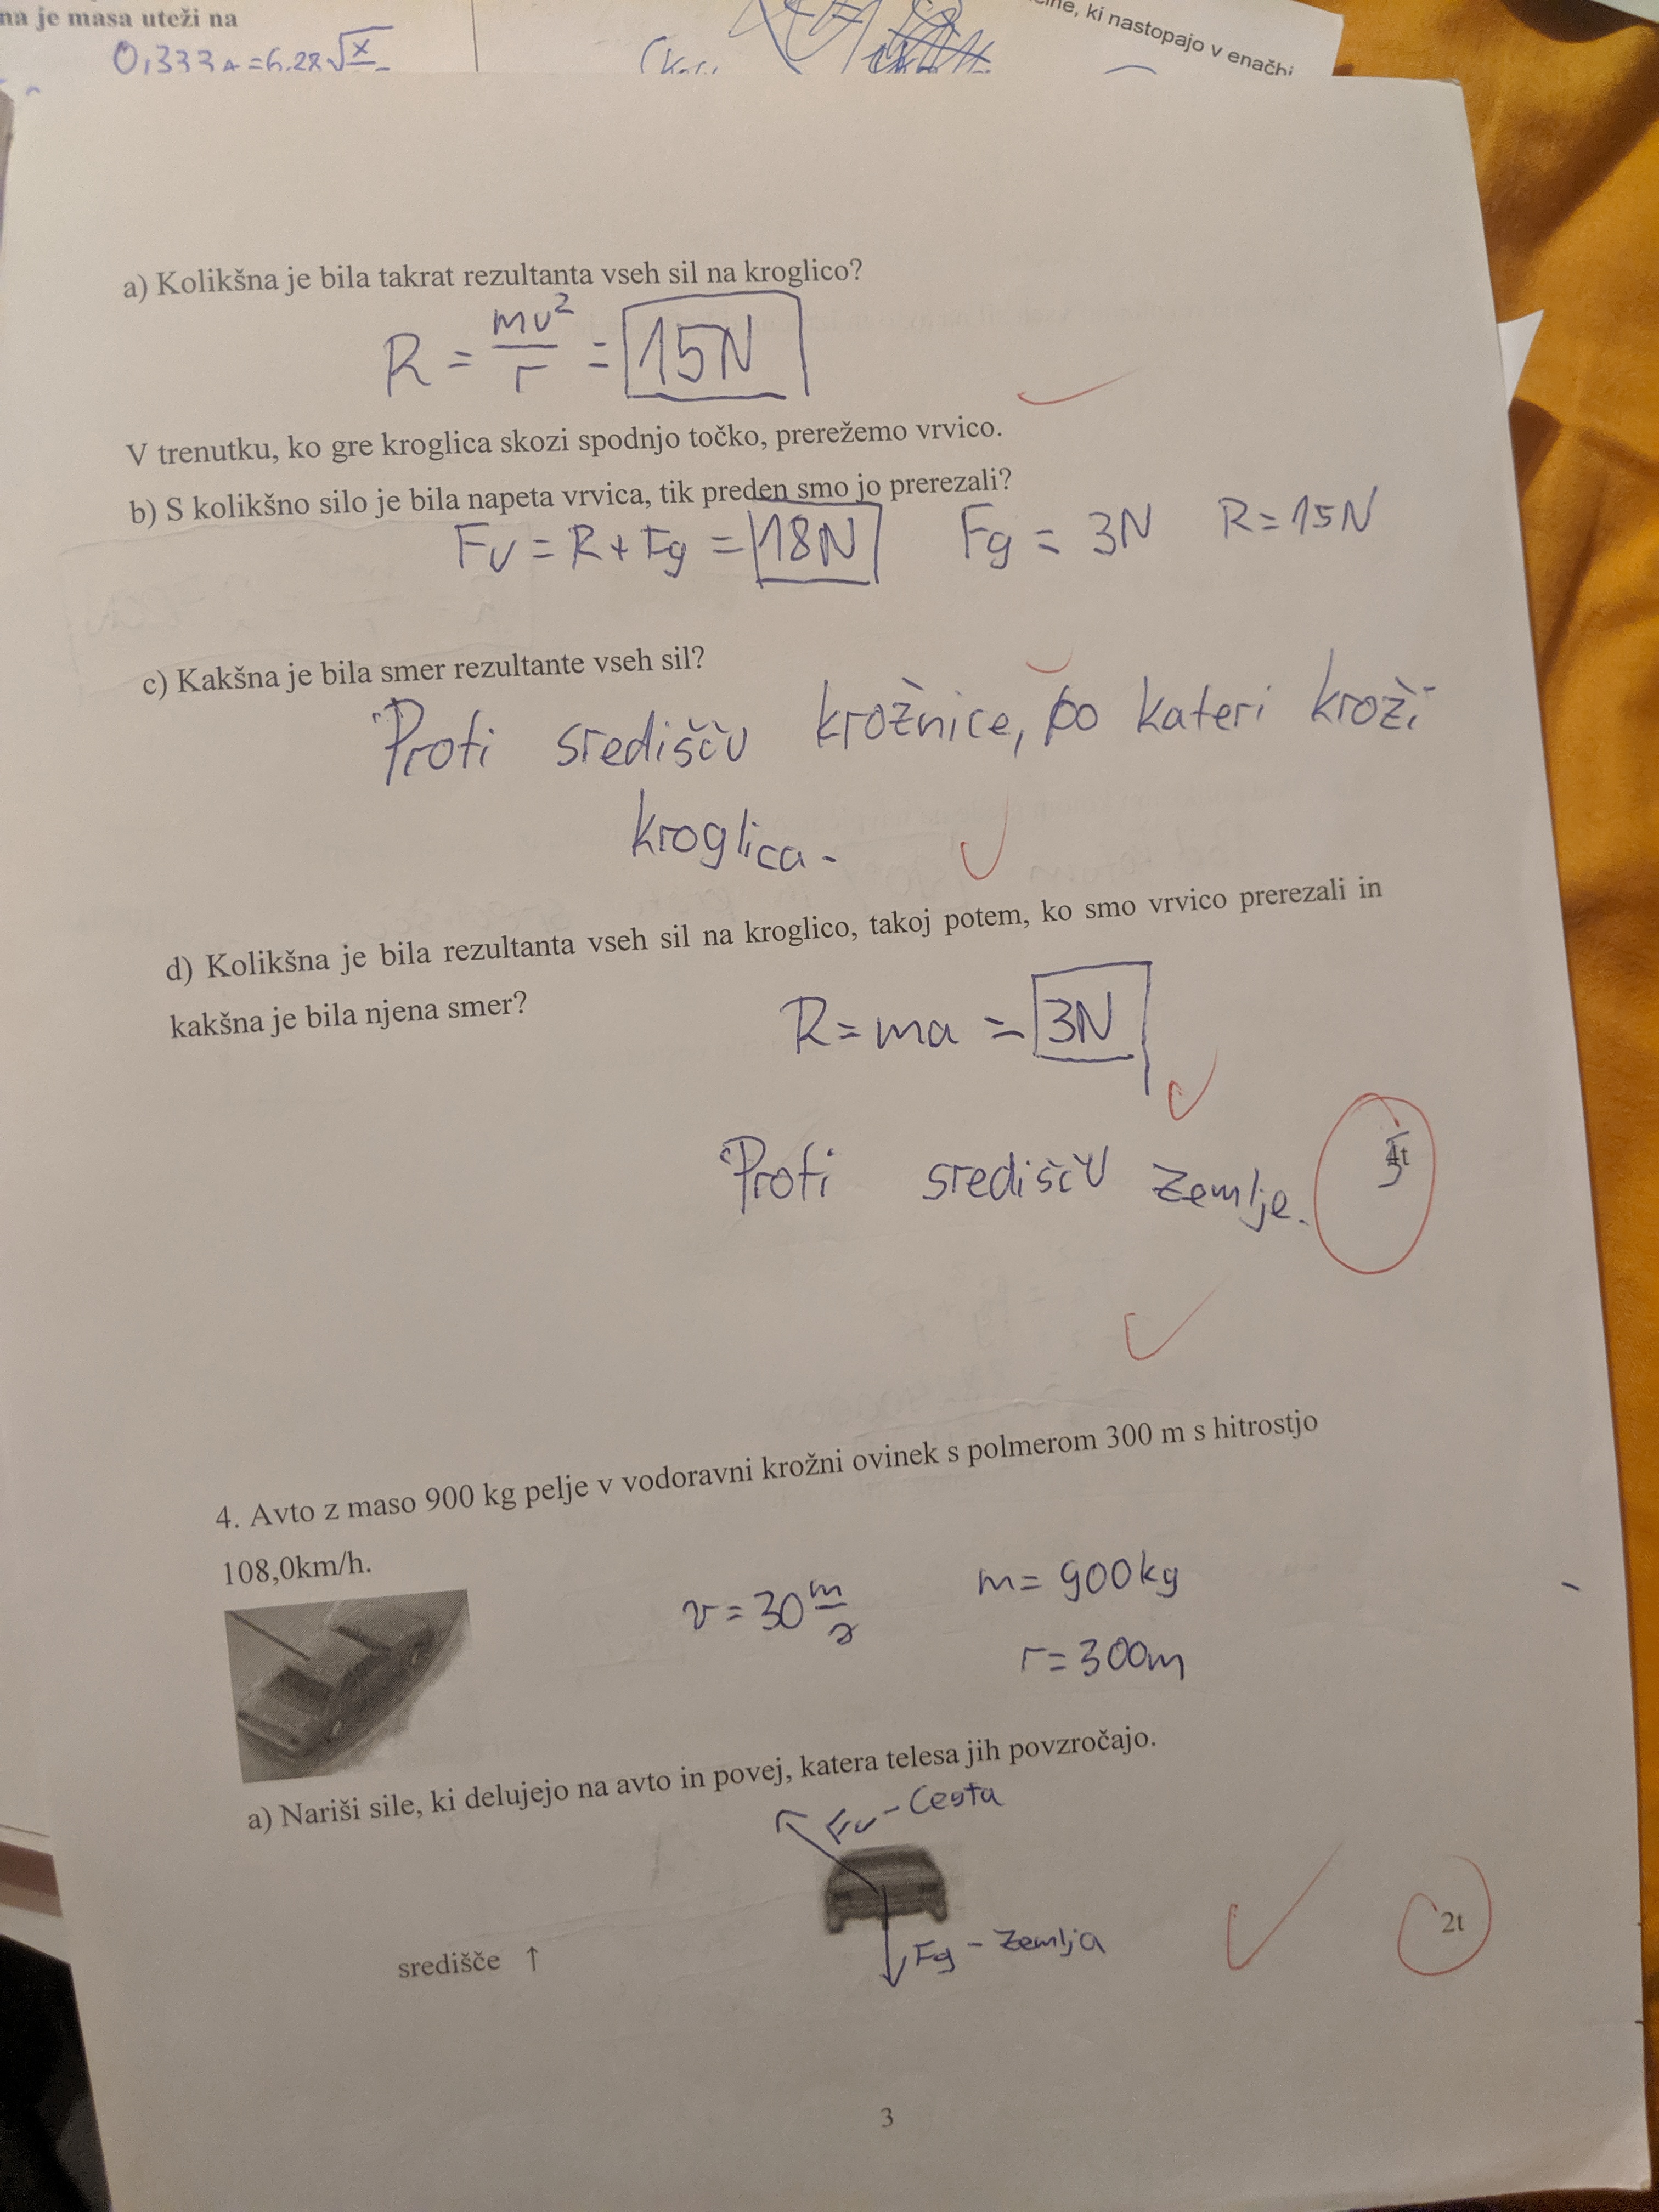 na je masa uteži na
0,333 s = 6.28 √x
ki nastopajo v enačbi
a) Kolikšna je bila takrat rezultanta vseh sil na kroglico?
R = mv²/r = 15N
V trenutku, ko gre kroglica skozi spodnjo točko, prerežemo vrvico.
b) S kolikšno silo je bila napeta vrvica, tik preden smo jo prerezali?
Fv = R + Fg = 18N Fg = 3N R = 15N
c) Kakšna je bila smer rezultante vseh sil?
Proti središču krožnice, po kateri kroži
kroglica.
d) Kolikšna je bila rezultanta vseh sil na kroglico, takoj potem, ko smo vrvico prerezali in
kakšna je bila njena smer?
R = ma = 3N
Proti središču Zemlje.
4. Avto z maso 900 kg pelje v vodoravni krožni ovinek s polmerom 300 m s hitrostjo
108,0km/h.
v = 30 m/s m = 900kg
r = 300m
a) Nariši sile, ki delujejo na avto in povej, katera telesa jih povzročajo.
Fv - Cesta
Fg - Zemlja
2t
središče ↑
3